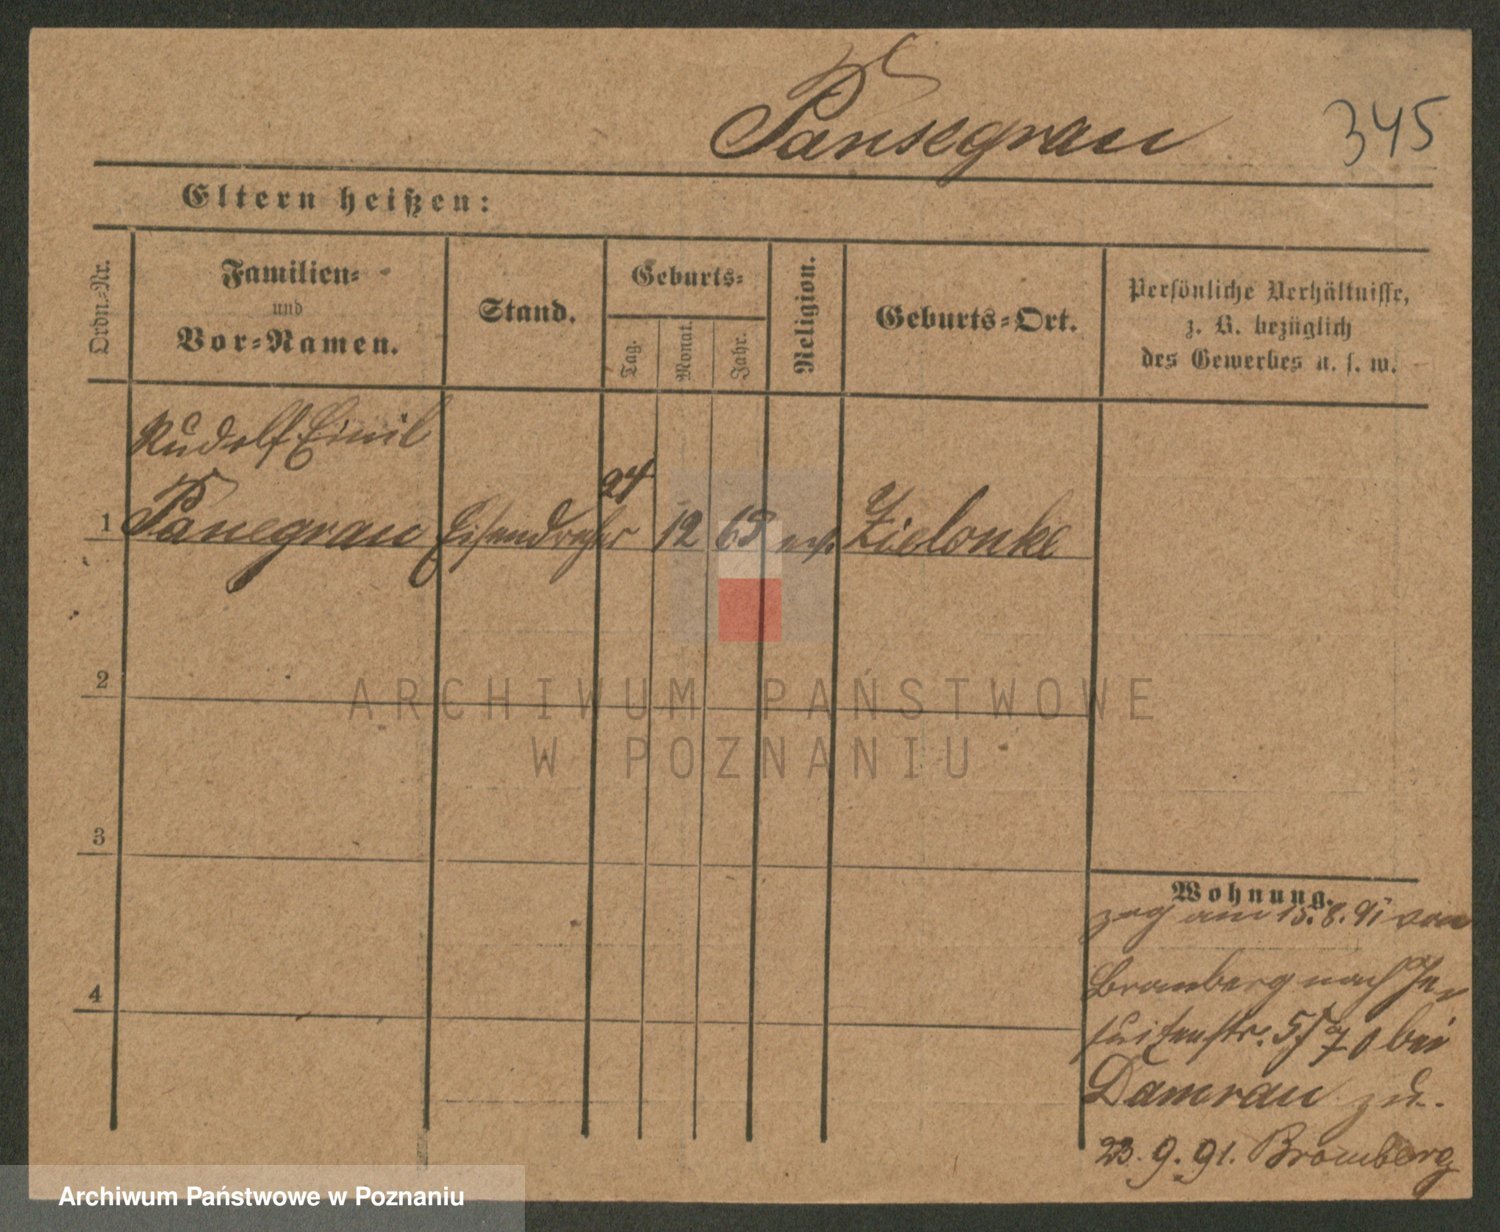 Pansegrau 345
Eltern heißen:
Ordn.-Nr.
Familien-
und
Vor-Namen.
Stand.
Geburts-
Tag.
Monat.
Jahr.
Religion.
Geburts-Ort.
Persönliche Verhältnisse,
z. B. bezüglich
des Gewerbes u. s. w.
Rudolf Emil
1 Pansegrau Eisendreher 24 12 69 ev. Zielonke
2
3
4
ARCHIWUM PAŃSTWOWE
W POZNANIU
Wohnung.
zog am 15.8.91 von
Bromberg nach Je-
suitenstr. 5 bei
Damrau zu.
23.9.91. Bromberg
Archiwum Państwowe w Poznaniu